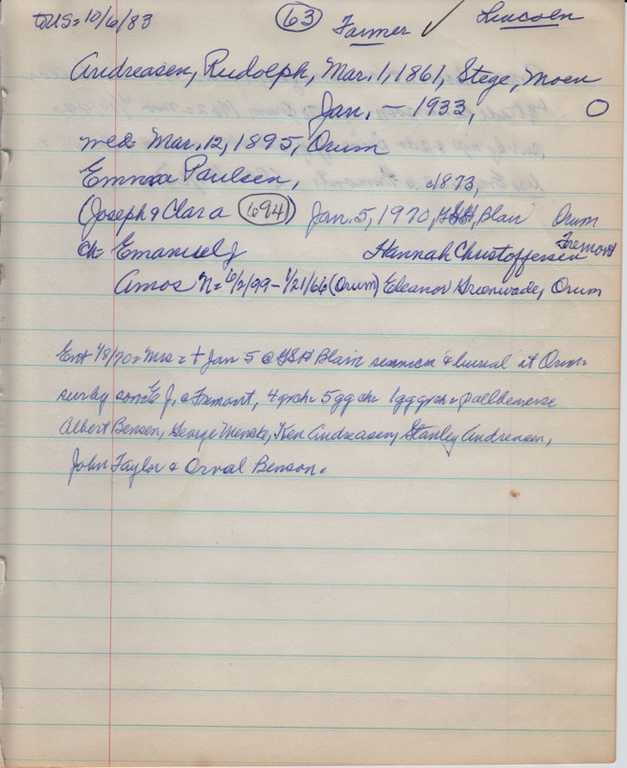 toUS= 10/6/83 63 Farmer ✓ Lincoln
Andreasen, Rudolph, Mar. 1, 1861, Stege, Moen
Jan. - 1933, O
med= Mar. 12, 1895, Orum
Emma Paulsen, 1873,
(Joseph & Clara 694) Jan. 5, 1970, Blair Orum
ch= Emanuel J Hannah Christoffersen Fremont
Amos N= 6/2/99 - 1/21/66 (Orum) Eleanor Grenwade, Orum
Ent 1/8/70= Mrs = † Jan 5 @ GSH Blair services & burial at Orum=
surby son E J. @ Fremont, 4 grch= 5 gg ch= 1 gggrch= pallbearers
Albert Bensen, George Menske, Ken Andreasen, Stanley Andreasen,
John Taylor & Orval Benson.